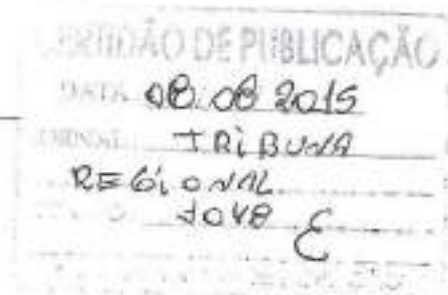 CERTIDÃO DE PUBLICAÇÃO
DATA 08.08 2015
JORNAL TRIBUNA
REGIONAL
1048